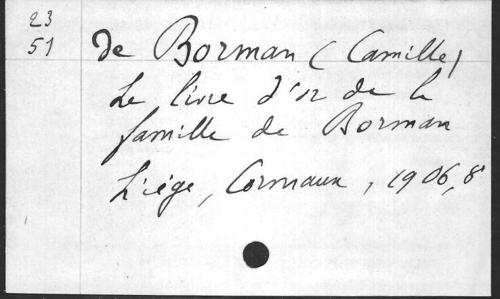 23
51
de Borman (Camille)
Le livre d'or de la
famille de Borman
Liège, Cormaux, 1906, 8°